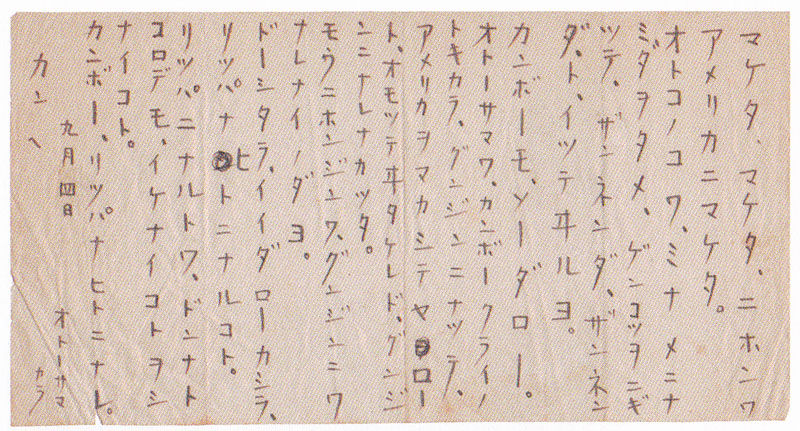 マケタ、マケタ、ニホンワ
アメリカニマケタ。
オトコノコワ、ミナメニナ
ミダヲタメ、ゲンコツヲニギ
ツテ、ザンネンダ、ザンネン
ダ、ト、イツテヰルヨ。
カンボーモ、ソーダロー。
オトーサマワ、カンボークライノ
トキカラ、グンジンニナツテ、
アメリカヲマカシテヤロー
ト、オモツテヰタケレド、グンジ
ンニナレナカツタ。
モウニホンジンワ、グンジンニワ
ナレナイノダヨ。
ドーシタラ、イイダローカシラ、
リツパナヒトニナルコト。
リツパニナルトワ、ドンナト
コロデモ、イケナイコトヲシ
ナイコト。
カンボー、リツパナヒトニナレ。
九月四日
オトーサマ
カラ
カンヘ